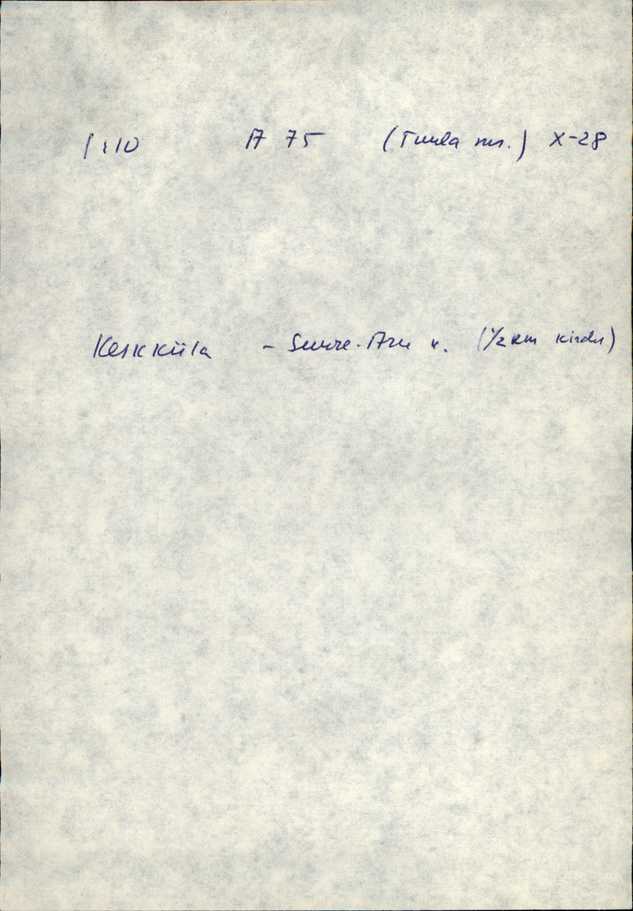 1:10 A 75 (Tuula ms.) X-28
Keskküla - Suure-Aru k. (1/2 km kirdes)